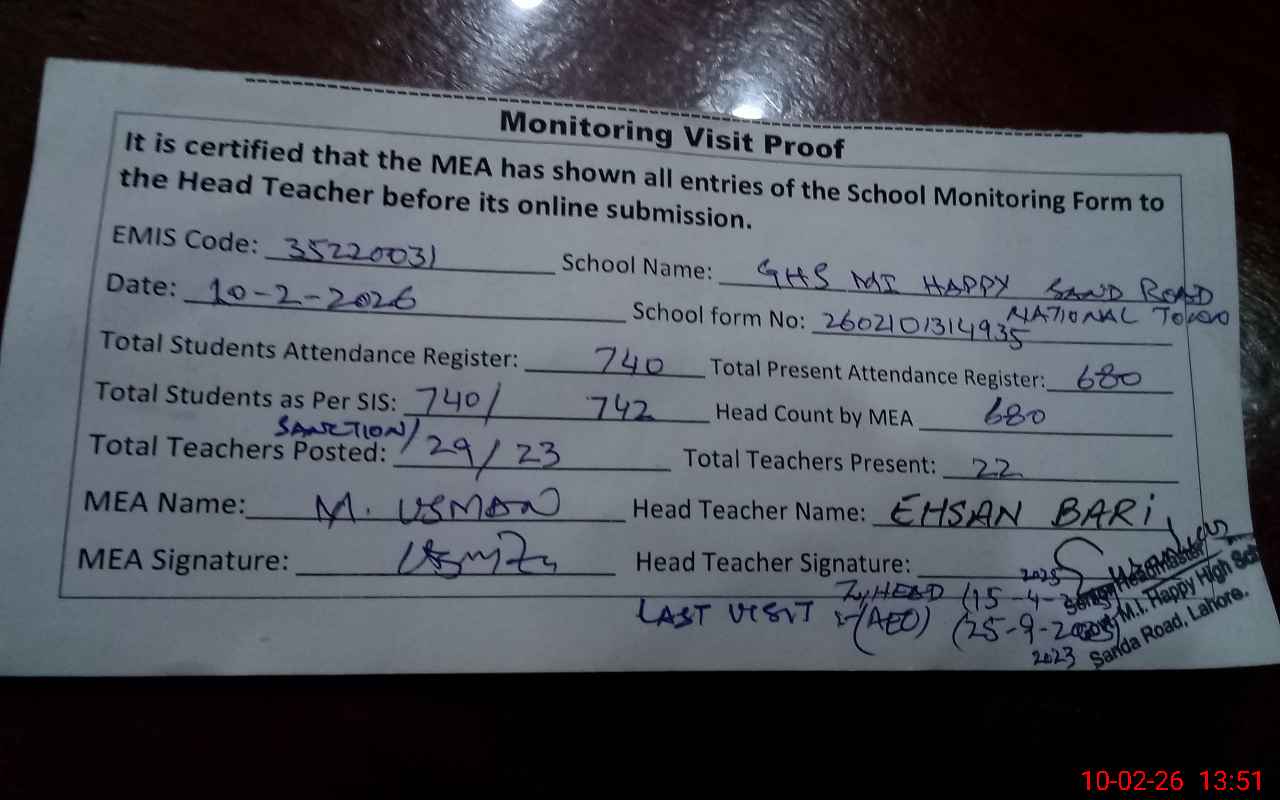 Monitoring Visit Proof
It is certified that the MEA has shown all entries of the School Monitoring Form to
the Head Teacher before its online submission.
EMIS Code: 35220031 School Name: GHS MI HAPPY SAND ROAD
NATIONAL TOWN
Date: 10-2-2026 School form No: 2602101314935
Total Students Attendance Register: 740 Total Present Attendance Register: 680
Total Students as Per SIS: 740/ 742 Head Count by MEA 680
SANCTION/
Total Teachers Posted: 29/23 Total Teachers Present: 22
MEA Name: M. USMAN Head Teacher Name: EHSAN BARI
MEA Signature: Head Teacher Signature:
2025
HEAD (15-4-
LAST VISIT :-(AEO) (25-9-
2023
Senior Headmaster
Govt. M.I. Happy High
Sanda Road, Lahore.
10-02-26 13:51